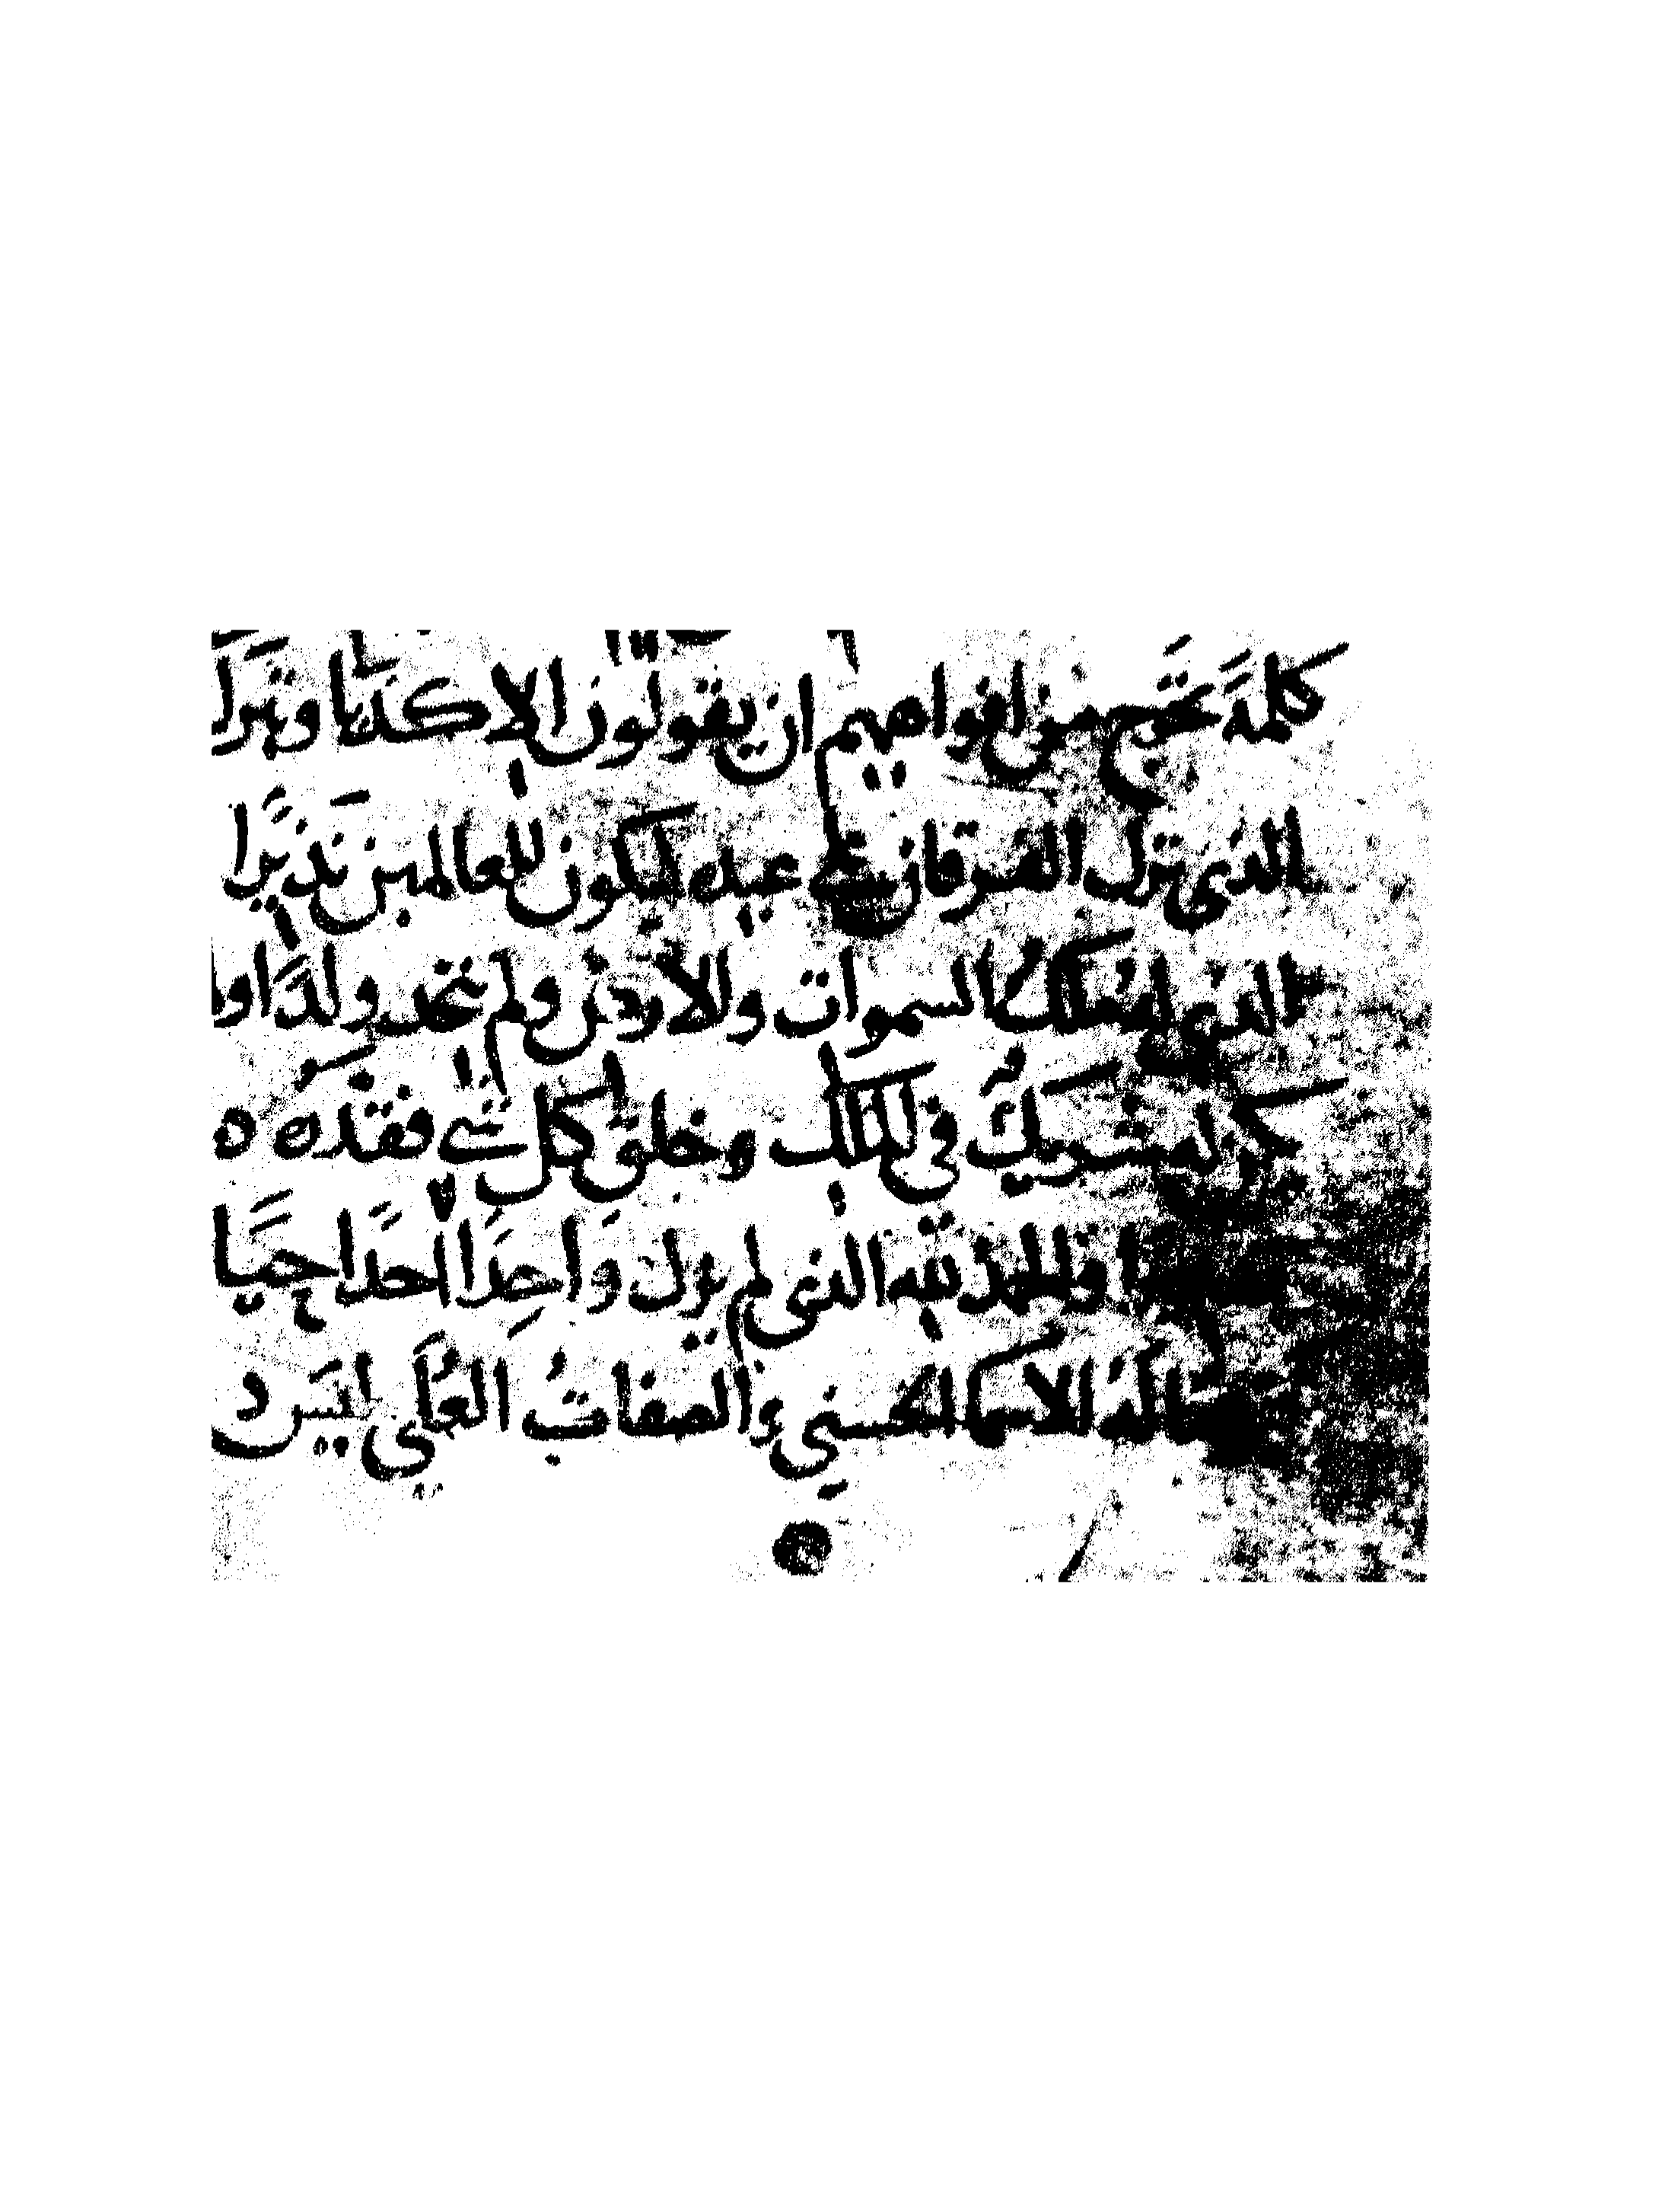 كلمةً تخرج من افواههم ان يقولون الا كذبا وتبرا
الذي نزل الفرقان على عبده ليكون للعالمين نذيرًا
الذي له ملكُ السموات والارض ولم يتخذ ولدًا ولم
يكن له شريكٌ في الملك وخلق كل شي فقدره ه
والحمد لله الذي لم يزل وَاحِدًا احدًا حيًّا
لهُ الاسما الحسنى والصفاتُ العُلَى ليسَ